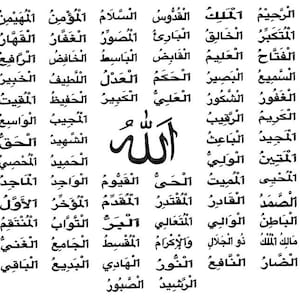 الرَّحِيمُ المَلِكُ القُدُّوسُ السَّلَامُ المُؤْمِنُ المُهَيْمِنُ
المُتَكَبِّرُ الخَالِقُ البَارِئُ المُصَوِّرُ الغَفَّارُ القَهَّارُ
الفَتَّاحُ العَلِيمُ القَابِضُ البَاسِطُ الخَافِضُ الرَّافِعُ
السَّمِيعُ البَصِيرُ الحَكَمُ العَدْلُ اللَّطِيفُ الخَبِيرُ
الغَفُورُ الشَّكُورُ العَلِيُّ الكَبِيرُ الحَفِيظُ المُقِيتُ
الكَرِيمُ الرَّقِيبُ المُجِيبُ الوَاسِعُ
المَجِيدُ البَاعِثُ الشَّهِيدُ الحَقُّ
اَللّٰهُ
المَتِينُ الوَلِيُّ الحَمِيدُ المُحْصِي
المُحْيِي المُمِيتُ الحَيُّ القَيُّومُ الوَاجِدُ المَاجِدُ
الصَّمَدُ القَادِرُ المُقْتَدِرُ المُقَدِّمُ المُؤَخِّرُ الأَوَّلُ
البَاطِنُ الوَالِي المُتَعَالِي البَرُّ التَّوَّابُ المُنْتَقِمُ
مَالِكُ المُلْكِ ذُو الجَلَالِ وَالإِكْرَامِ المُقْسِطُ الجَامِعُ الغَنِيُّ
الضَّارُّ النَّافِعُ النُّورُ الهَادِي البَدِيعُ البَاقِي
الرَّشِيدُ الصَّبُورُ